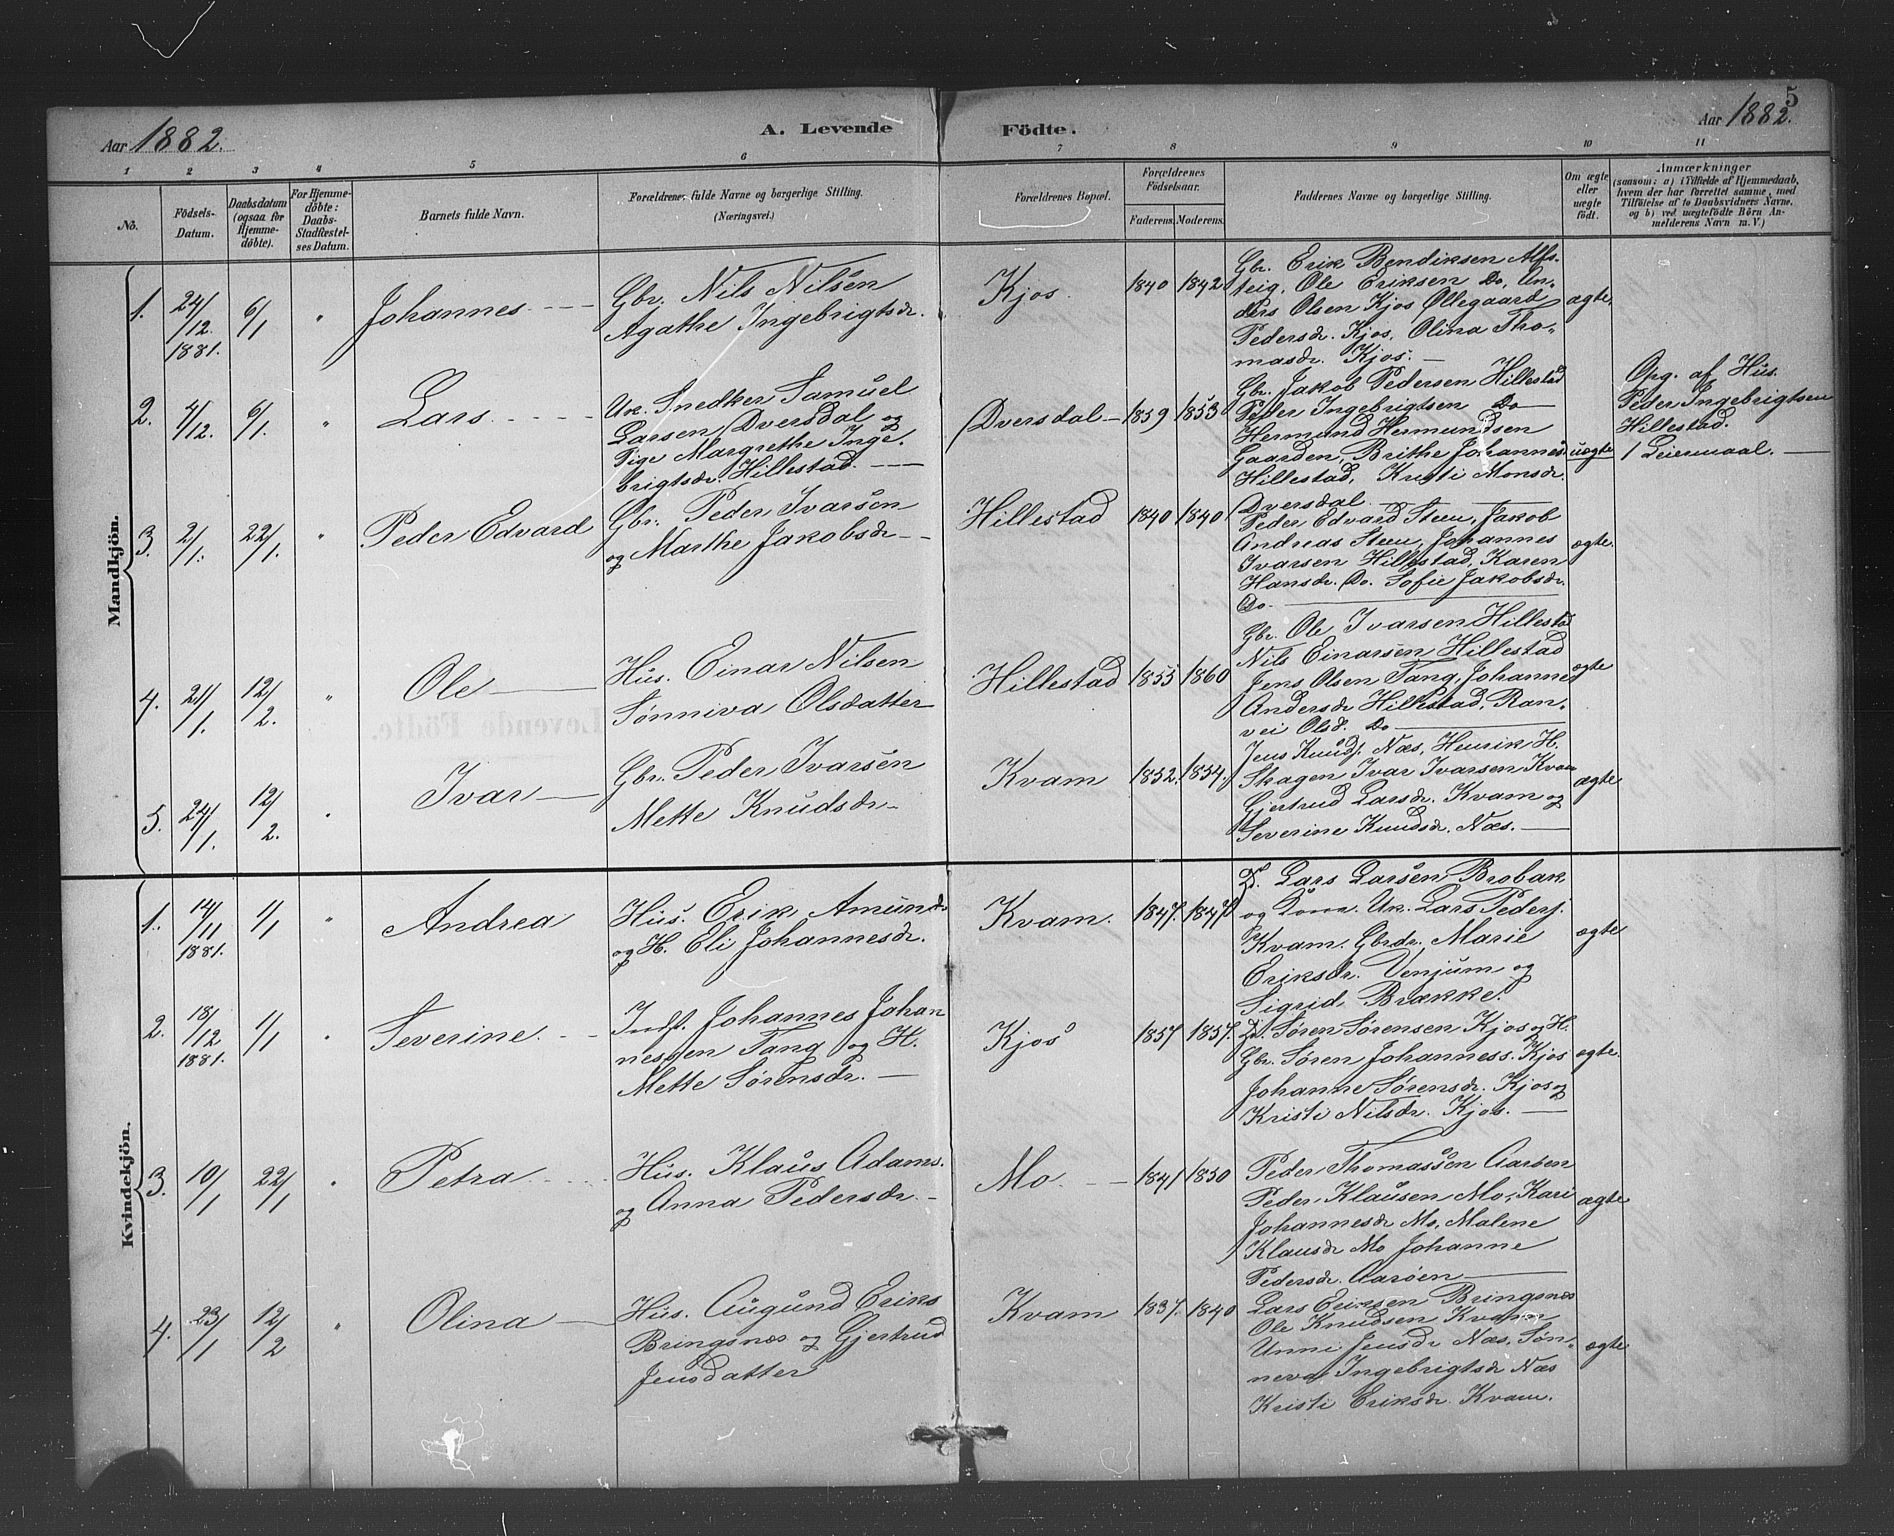 Aar 1882.
A. Levende Födte.
5
Aar 1882.
1 2 3 4 5 6 7 8 9 10 11
No.
Födsels-
Datum.
Daabsdatum
(ogsaa for
Hjemme-
døbte).
For Hjemme-
døbte:
Daabs-
Stadfæstel-
ses Datum.
Barnets fulde Navn.
Forældrenes fulde Navne og borgerlige Stilling.
(Næringsvei.)
Forældrenes Bopæl.
Forældrenes
Födselsaar.
Faderens. Moderens.
Faddernes Navne og borgerlige Stilling.
Om ægte
eller
uægte
født.
Anmærkninger
(saasom: a) i Tilfælde af Hjemmedaab,
hvem der har forrettet samme, med
Tilföielse af to Daabsvidners Navne,
og b) ved uægtefödte Börn An-
melderens Navn m. V.)
Mandkjön.
1. 24/12 1881. 6/1 " Johannes
Gbr. Nils Nilsen
Agathe Ingebrigtsdr.
Kjos. 1840 1842
Gbr. Erik Bendiksen Alfs-
teig, Ole Eriksen Do, An-
ders Olsen Kjos Ollegaard
Pedersdr. Kjos, Olina Tho-
masdr. Kjos. —
ægte
2. 4/12. 6/1. " Lars
Uk. Snedker Samuel
Larsen Dversdal og
Pige Margrethe Inge-
brigtsdr. Hillestad. —
Dversdal — 1859 1853
Gbr. Jakob Pedersen Hillestad
Peder Ingebrigtsen Do —
Hermund Hermundsen
Gaarden, Brithe Johannes
Hillestad, Kristi Monsdr.
Dversdal —
uægte
Opg. af Hus.
Peder Ingebrigtsen
Hillestad.
1 Leiermaal. —
3. 2/1. 22/1. " Peder Edvard
Gbr. Peder Ivarsen
og Marthe Jakobsdr —
Hillestad 1840 1840
Peder Edvard Steen, Jakob
Andreas Steen, Johannes
Ivarsen Hillestad, Karen
Hansdr. Do. Sofie Jakobsdr.
Do. —
ægte.
4. 21/1. 12/2. " Ole —
Hus. Einar Nilsen
Sønniva Olsdatter
Hillestad 1855 1860
Gbr. Ole Ivarsen Hillestad
Nils Einarsen Hillestad
Jens Olsen Tang, Johanne
Andersdr Hillestad, Ran-
vei Olsd. Do —
ægte
5. 24/1. 12/2. " Ivar —
Gbr. Peder Ivarsen
Mette Knudsdr —
Kvam 1852. 1854.
Jens Knuds. Næs, Henrik H.
Skagen Ivar Ivarsen Kvam
Gjertrud Larsdr. Kvam og
Severine Knudsdr. Næs. —
ægte
Kvindekjön.
1. 14/11 1881. 1/1 " Andrea
Hus. Erik Amunds
og H. Eli Johannesdr.
Kvam. 1847. 1847.
Lars Larsen Brobak
og Kone. Uk. Lars Peders.
Kvam. Gbrdr. Marie
Eriksdr. Venjum og
Sigrid Brække.
ægte
2. 18/12 1881. 1/1 " Severine.
Indf. Johannes Johan
nessen Tang og H.
Mette Sørensdr. —
Kjos 1857 1857.
Søren Sørensen Kjos og H.
Gbr. Søren Johanness. Kjos
Johanne Sørensdr. Kjos og
Kristi Nilsdr. Kjos. —
ægte.
3. 10/1 22/1 " Petra
Hus. Klaus Adams.
og Anna Pedersdr. —
Mo. — 1841 1850
Peder Thomassen Aarøen
Peder Klausen Mo, Kari
Johannesdr Mo, Malene
Klausdr Mo Johanne
Pedersdr. Aarøen —
ægte
4. 23/1 12/2 " Olina —
Hus. Augund Eriks
Bringsnæs og Gjertrud
Jensdatter
Kvam 1837. 1840
Lars Eriksen Bringsnæs
Ole Knudsen Kvam
Unni Jensdr Næs, Søn-
neva Ingebrigtsdr Næs
Kristi Eriksdr Kvam.
ægte